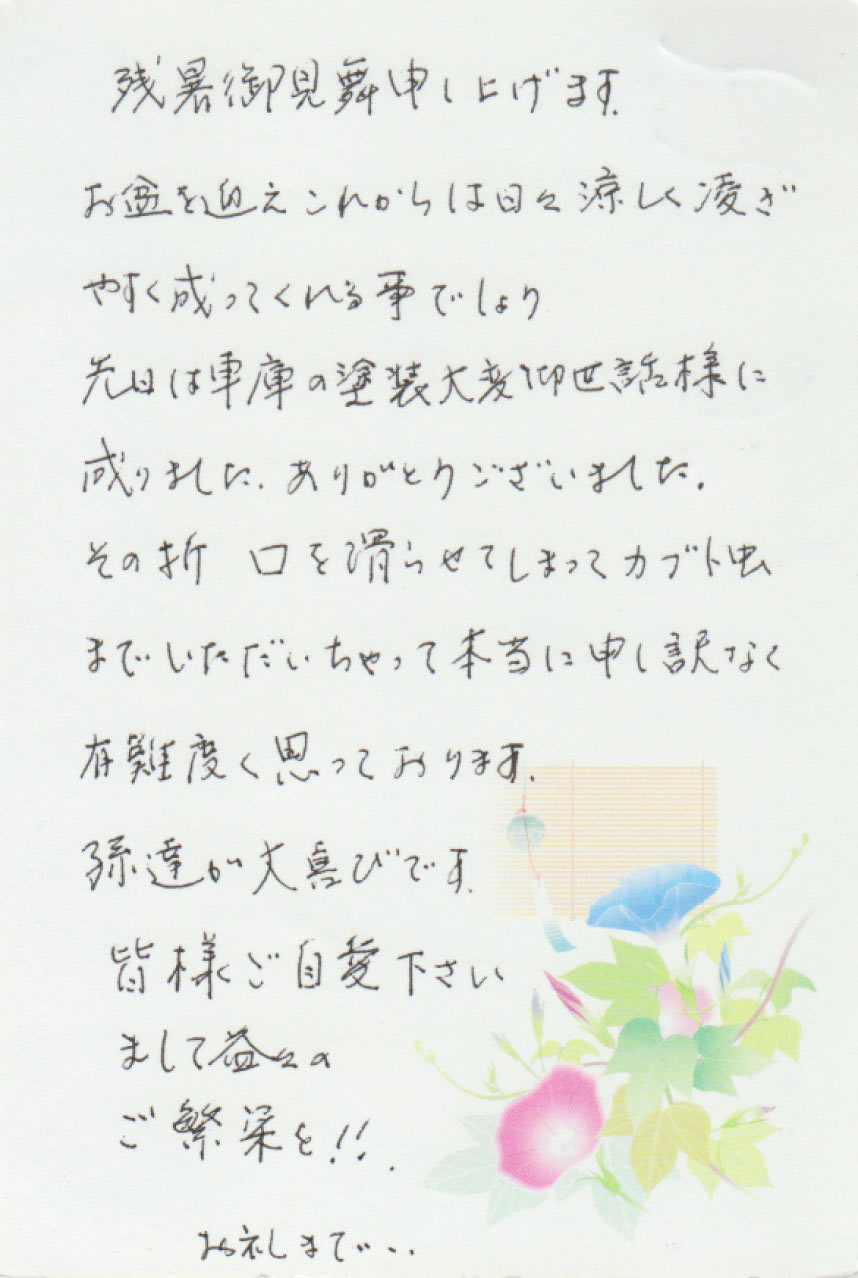 残暑御見舞申し上げます.
お盆を迎えこれからは日々涼しく凌ぎ
やすく成ってくれる事でしょう
先日は車庫の塗装大変御世話様に
成りました. ありがとうございました.
その折 口を滑らせてしまってカブト虫
までいただいちゃって本当に申し訳なく
有難度く思っております.
孫達が大喜びです.
皆様ご自愛下さい
まして益々の
ご繁栄を!!.
お礼まで...